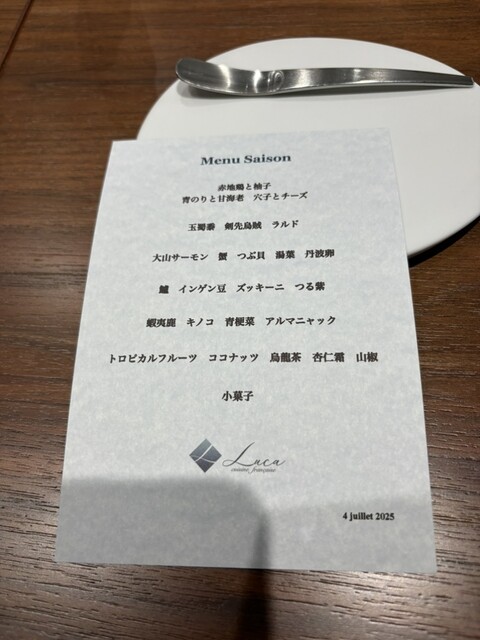 Menu Saison
赤地鶏と柚子
青のりと甘海老　穴子とチーズ
玉蜀黍　剣先烏賊　ラルド
大山サーモン　蟹　つぶ貝　湯葉　丹波卵
鱸　インゲン豆　ズッキーニ　つる紫
蝦夷鹿　キノコ　青梗菜　アルマニャック
トロピカルフルーツ　ココナッツ　烏龍茶　杏仁霜　山椒
小菓子
Luca
cuisine française
4 juillet 2025